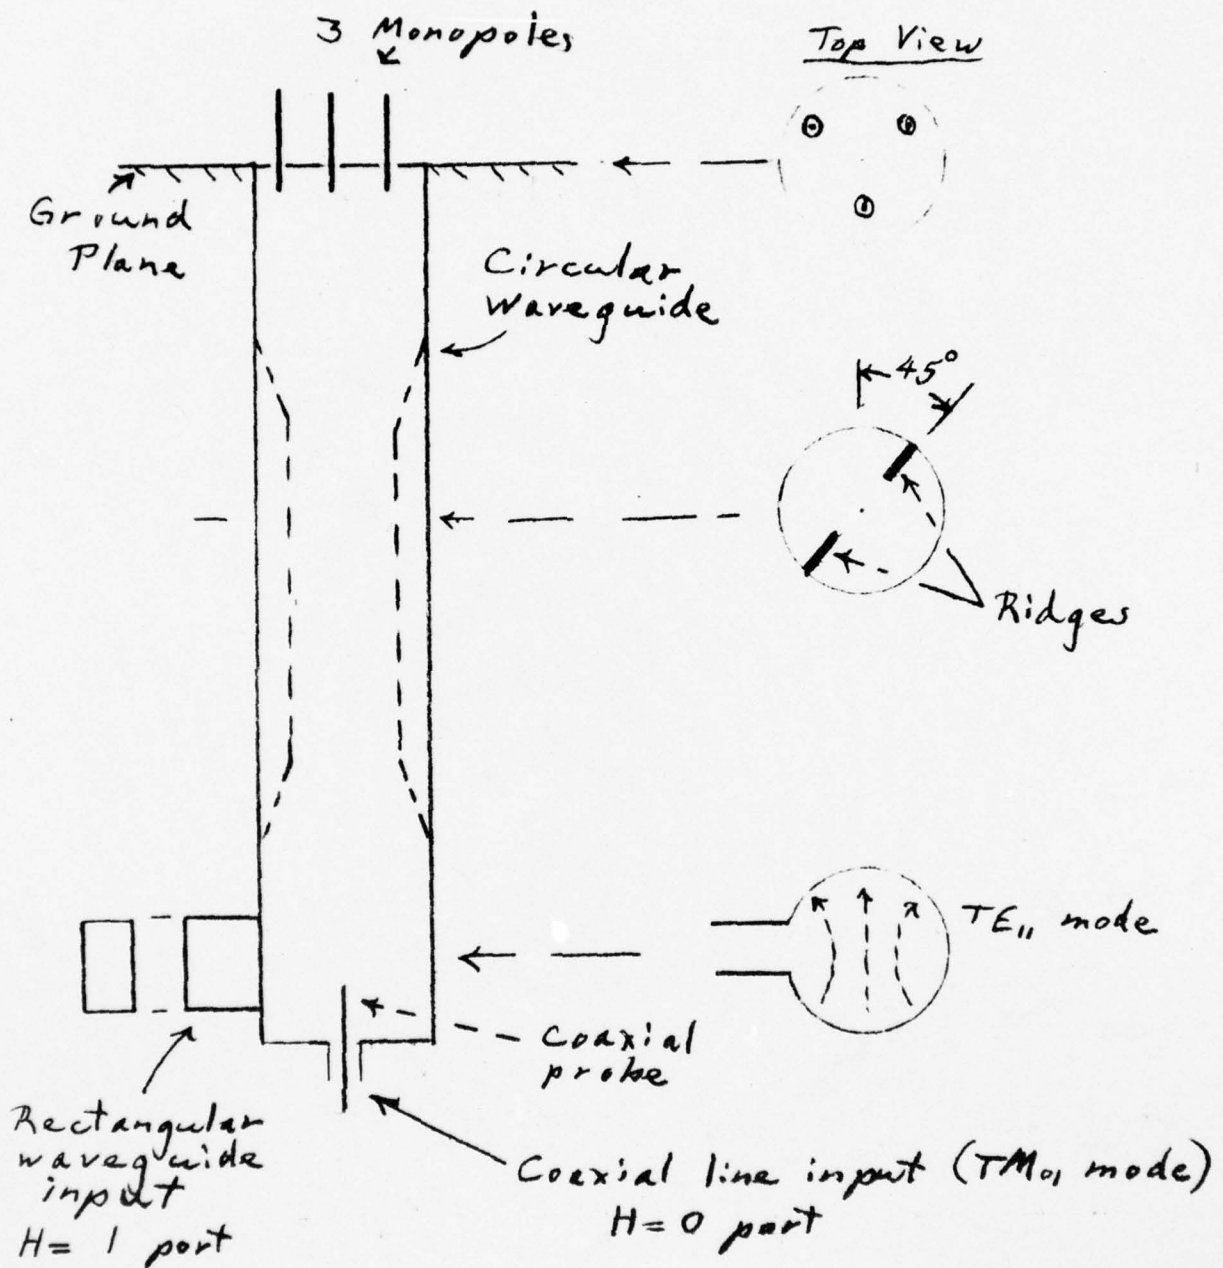 3 Monopoles
Top View
Ground
Plane
Circular
Waveguide
45°
Ridges
TE₁₁ mode
Coaxial
probe
Rectangular
waveguide
input
H= 1 port
Coaxial line input (TM₀₁ mode)
H=0 port